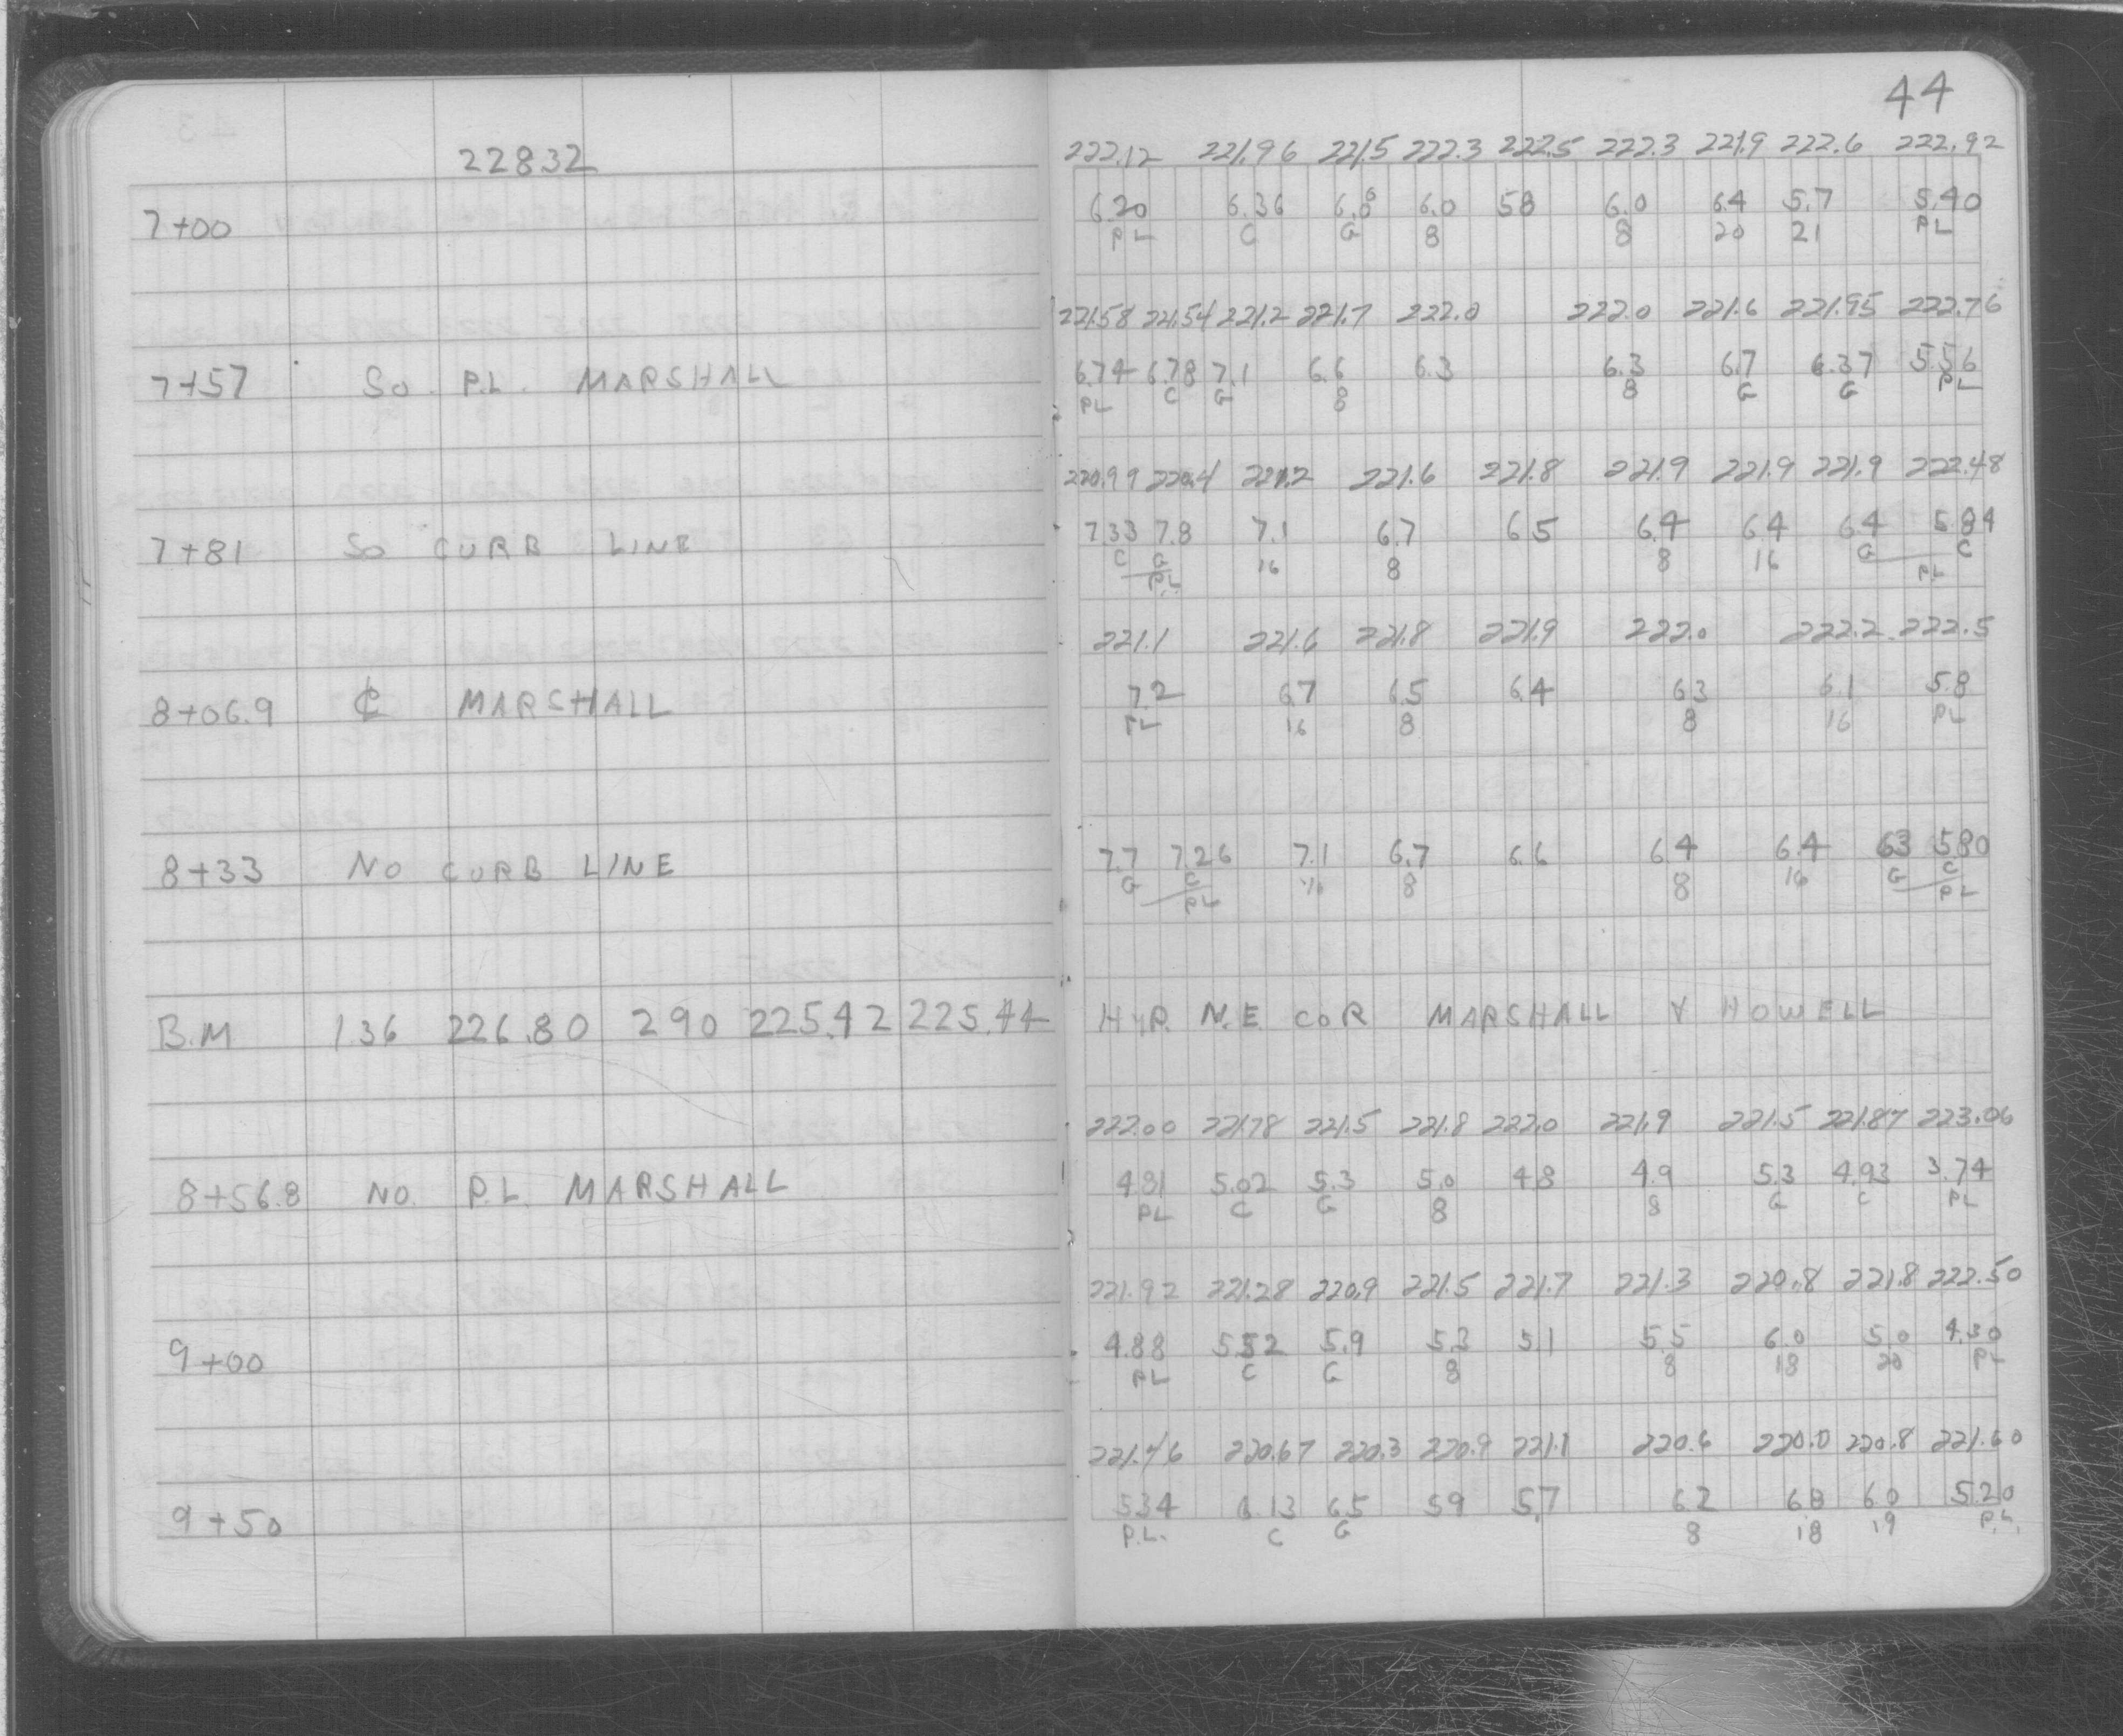 44
22832
222.12 221.96 221.5 222.3 222.5 222.3 221.9 222.6 222.92
7+00 6.20 6.36 6.8 6.0 58 6.0 6.4 5.7 5.40
PL C G 8 8 20 21 PL
221.58 221.54 221.2 221.7 222.0 222.0 221.6 221.95 222.76
7+57 So. P.L. MARSHALL 6.74 6.78 7.1 6.6 6.3 6.3 6.7 6.37 5.56
PL C G 8 8 G G PL
220.99 220.4 221.2 221.6 221.8 221.9 221.9 221.9 222.48
7+81 SO CURB LINE 7.33 7.8 7.1 6.7 65 6.4 6.4 6.4 5.84
C G 16 8 8 16 G C
PL PL
221.1 221.6 221.8 221.9 222.0 222.2 222.5
8+06.9 ℄ MARSHALL 7.2 6.7 6.5 6.4 63 6.1 5.8
PL 16 8 8 16 PL
8+33 NO CURB LINE 7.7 7.26 7.1 6.7 6.6 6.4 6.4 63 580
G C 16 8 8 16 G C
PL PL
B.M 1.36 226.80 290 225.42 225.44 HYD. N.E. COR MARSHALL & HOWELL
222.00 221.78 221.5 221.8 222.0 221.9 221.5 221.87 223.06
8+56.8 NO. P.L. MARSHALL 4.81 5.02 5.3 5.0 4.8 4.9 5.3 4.93 3.74
PL C G 8 8 G C PL
221.92 221.28 220.9 221.5 221.7 221.3 220.8 221.8 222.50
9+00 4.88 5.52 5.9 5.3 5.1 5.5 6.0 5.0 4.30
PL C G 8 8 18 20 PL
221.46 220.67 220.3 220.9 221.1 220.6 220.0 220.8 221.60
9+50 5.34 6.13 6.5 59 5.7 6.2 6.8 6.0 5.20
P.L. C G 8 18 19 P.L.